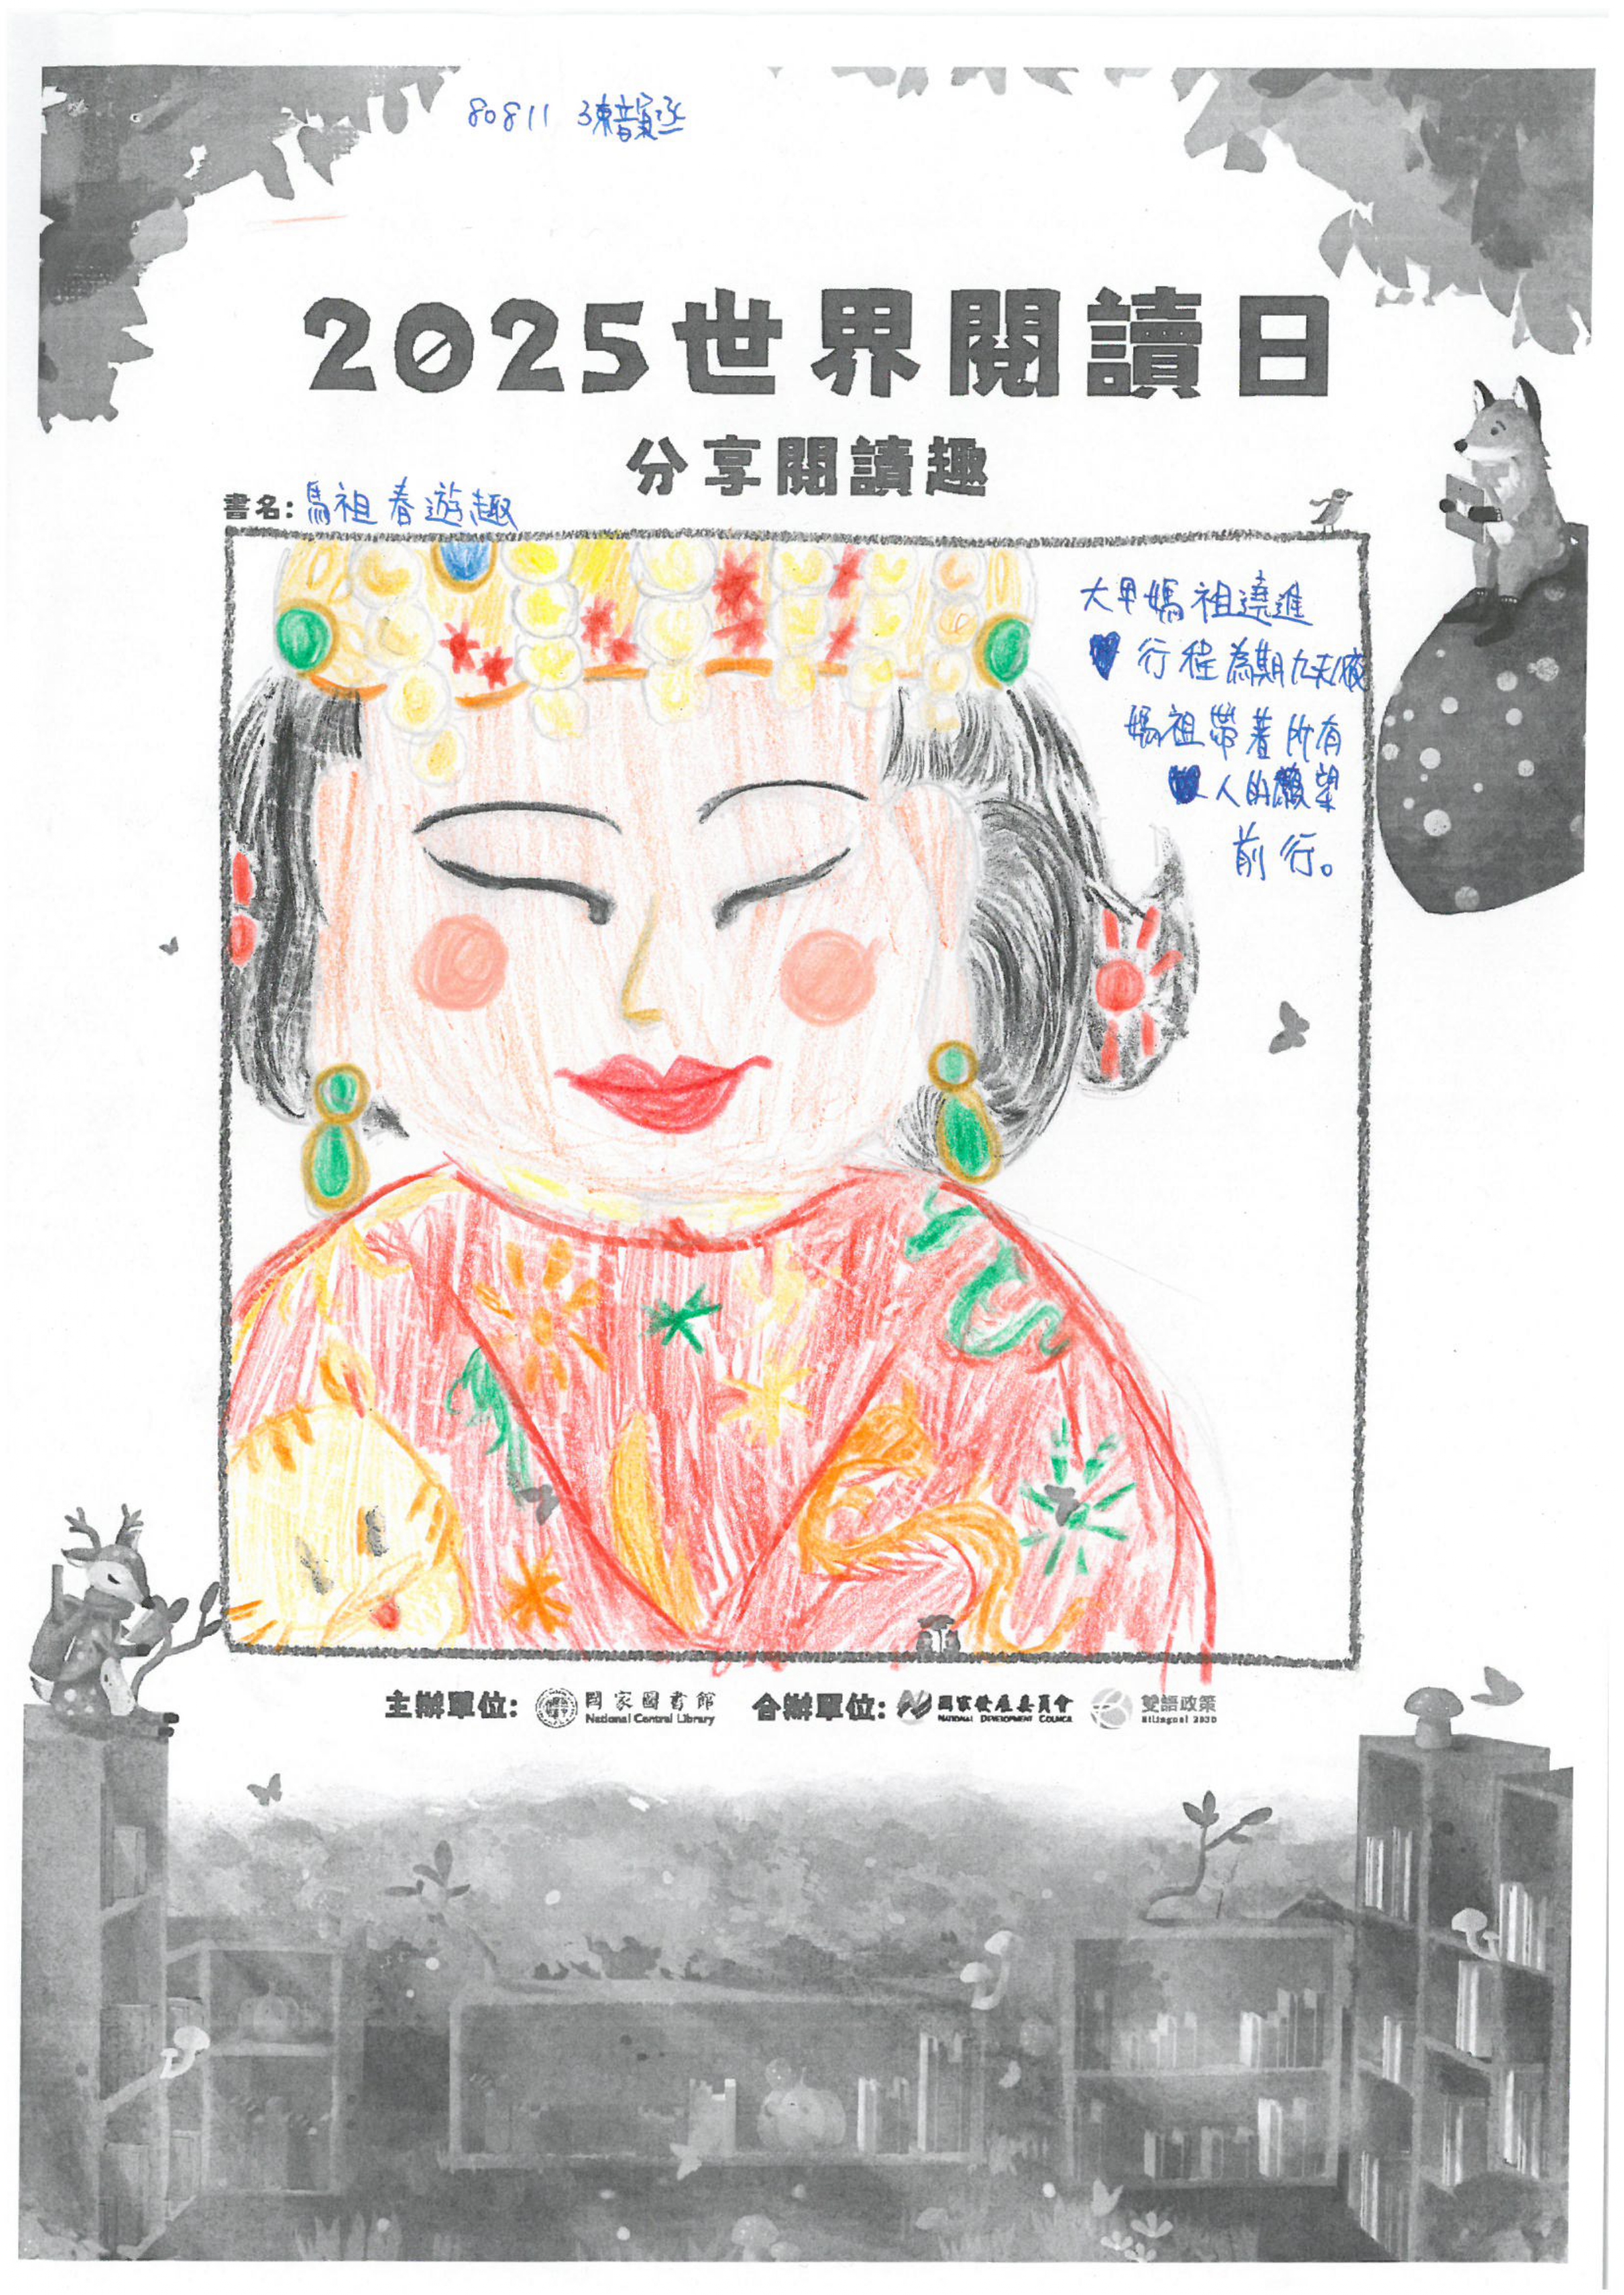 80811 陳韻丞
2025世界閱讀日
分享閱讀趣
書名: 馬祖春遊趣
大甲媽祖遶進
行程為期九天八夜
媽祖帶著所有
人的願望
前行。
主辦單位: 國家圖書館 National Central Library 合辦單位: 國家發展委員會 NATIONAL DEVELOPMENT COUNCIL 雙語政策 Bilingual 2030